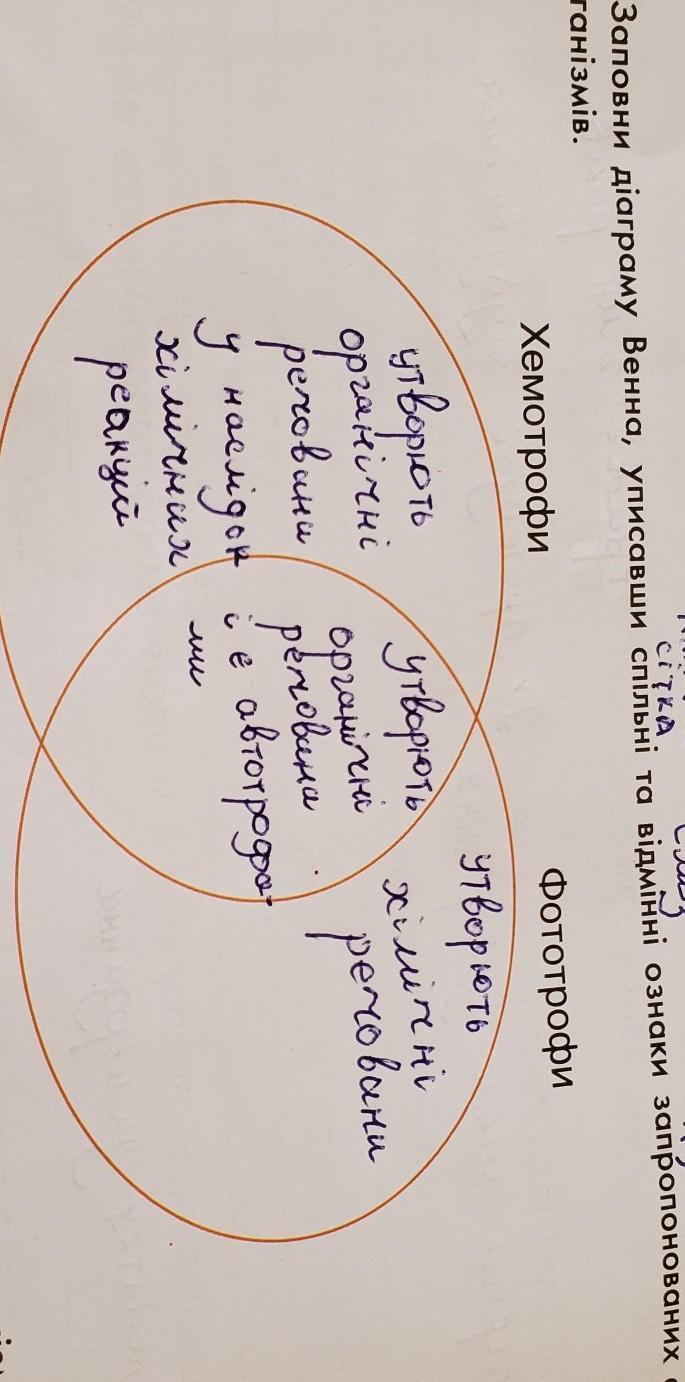 сітка.
Заповни діаграму Венна, уписавши спільні та відмінні ознаки запропонованих
ганізмів.
Хемотрофи
Фототрофи
утворють
органічні
речовини
у наслідок
хімічних
реакцій
утворють
органічні
речовини
і є автотрофа-
ми
утворють
хімічні
речовини